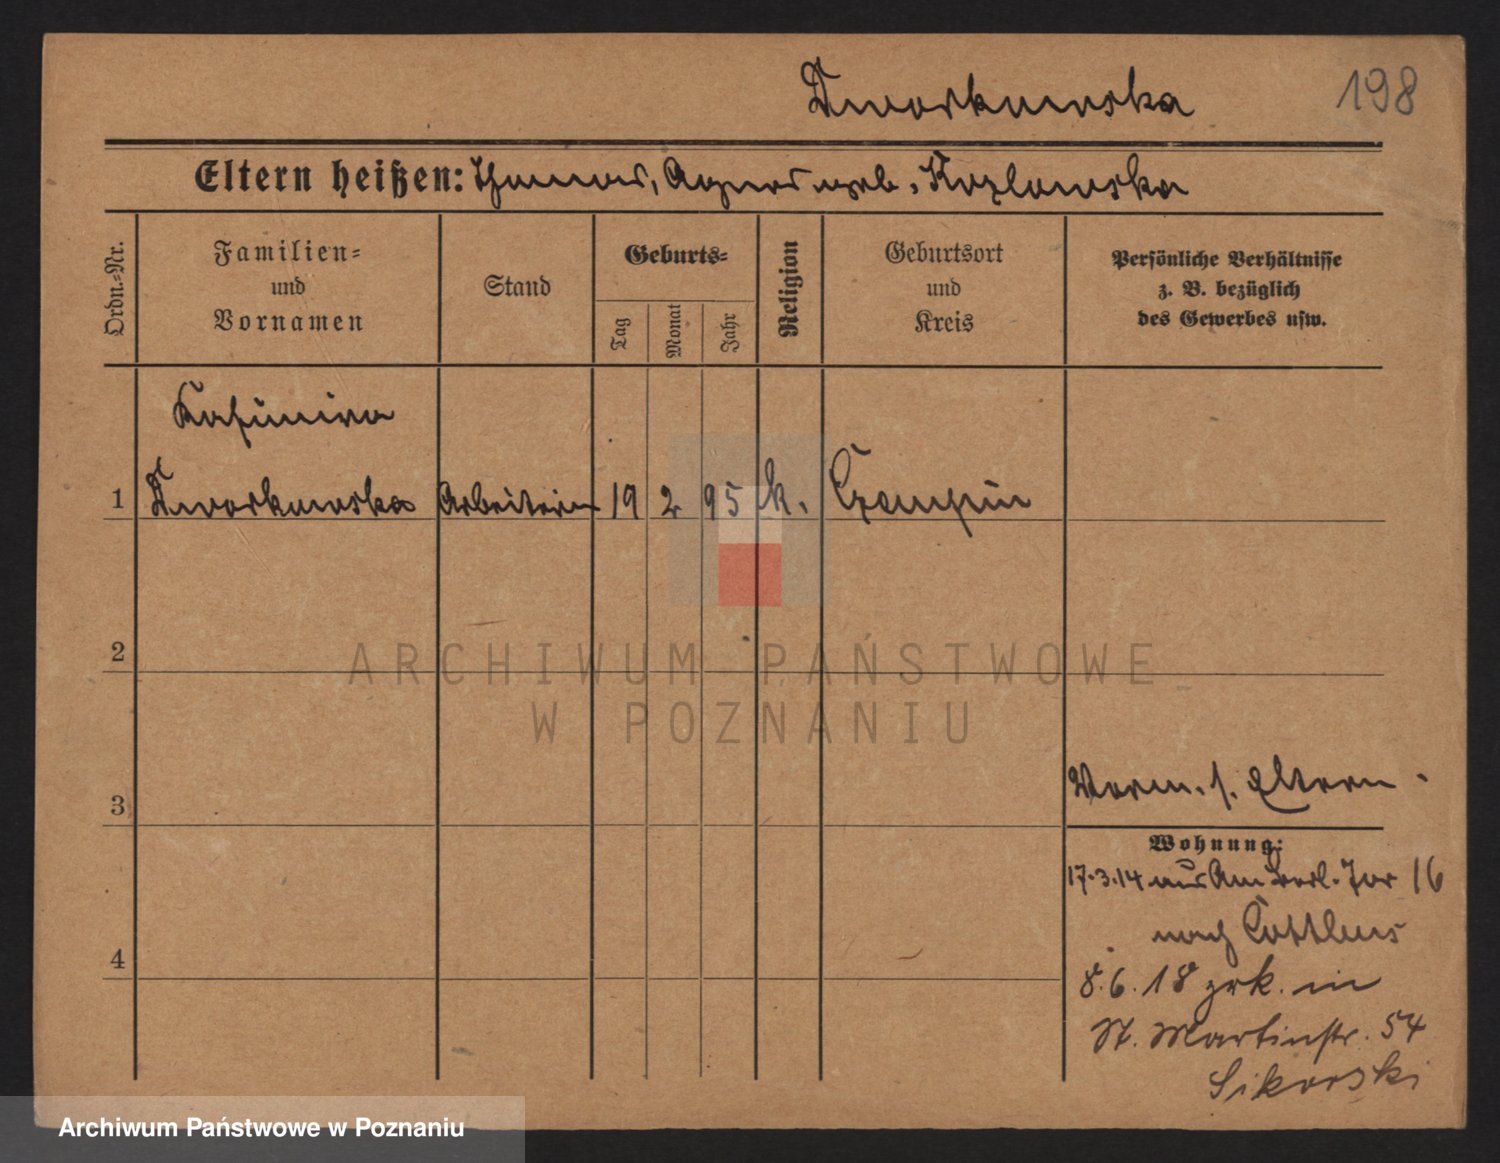 Dworkowska
198
Eltern heißen: Thomas, Agnes geb. Kozlowska
Ordn.-Nr.
Familien-
und
Vornamen
Stand
Geburts-
Tag
Monat
Jahr
Religion
Geburtsort
und
Kreis
Persönliche Verhältnisse
z. B. bezüglich
des Gewerbes usw.
Kasimira
1 Dworkowska Arbeiterin 19 2 95 k. Czempin
2
ARCHIWUM PAŃSTWOWE
W POZNANIU
3
Vorm. s. Eltern.
Wohnung:
17.3.14 aus Am Berl. Tor 16
nach Cottbus
4
8.6.18 zrk. in
St. Martinstr. 54
Sikorski
Archiwum Państwowe w Poznaniu